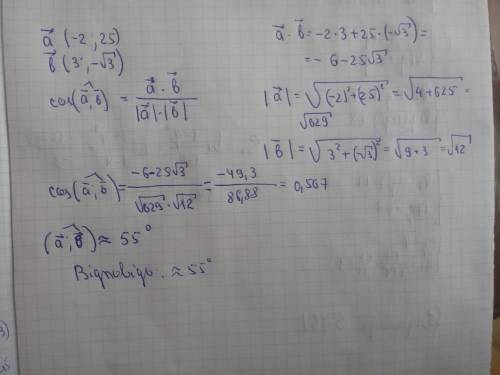 a⃗ (-2 ; 25)
b⃗ (3 ; -√3)
cos(a⃗,b⃗) = a⃗ · b⃗ / |a⃗|·|b⃗|
a⃗ · b⃗ = -2·3 + 25·(-√3) =
= - 6 - 25√3
|a⃗| = √(-2)²+(25)² = √4+625 =
√629
|b⃗| = √3²+(-√3)² = √9+3 = √12
cos(a⃗,b⃗) = -6-25√3 / √629 · √12 = -49,3 / 86,88 = 0,567
(a⃗,b⃗) ≈ 55°
Відповідь. ≈ 55°